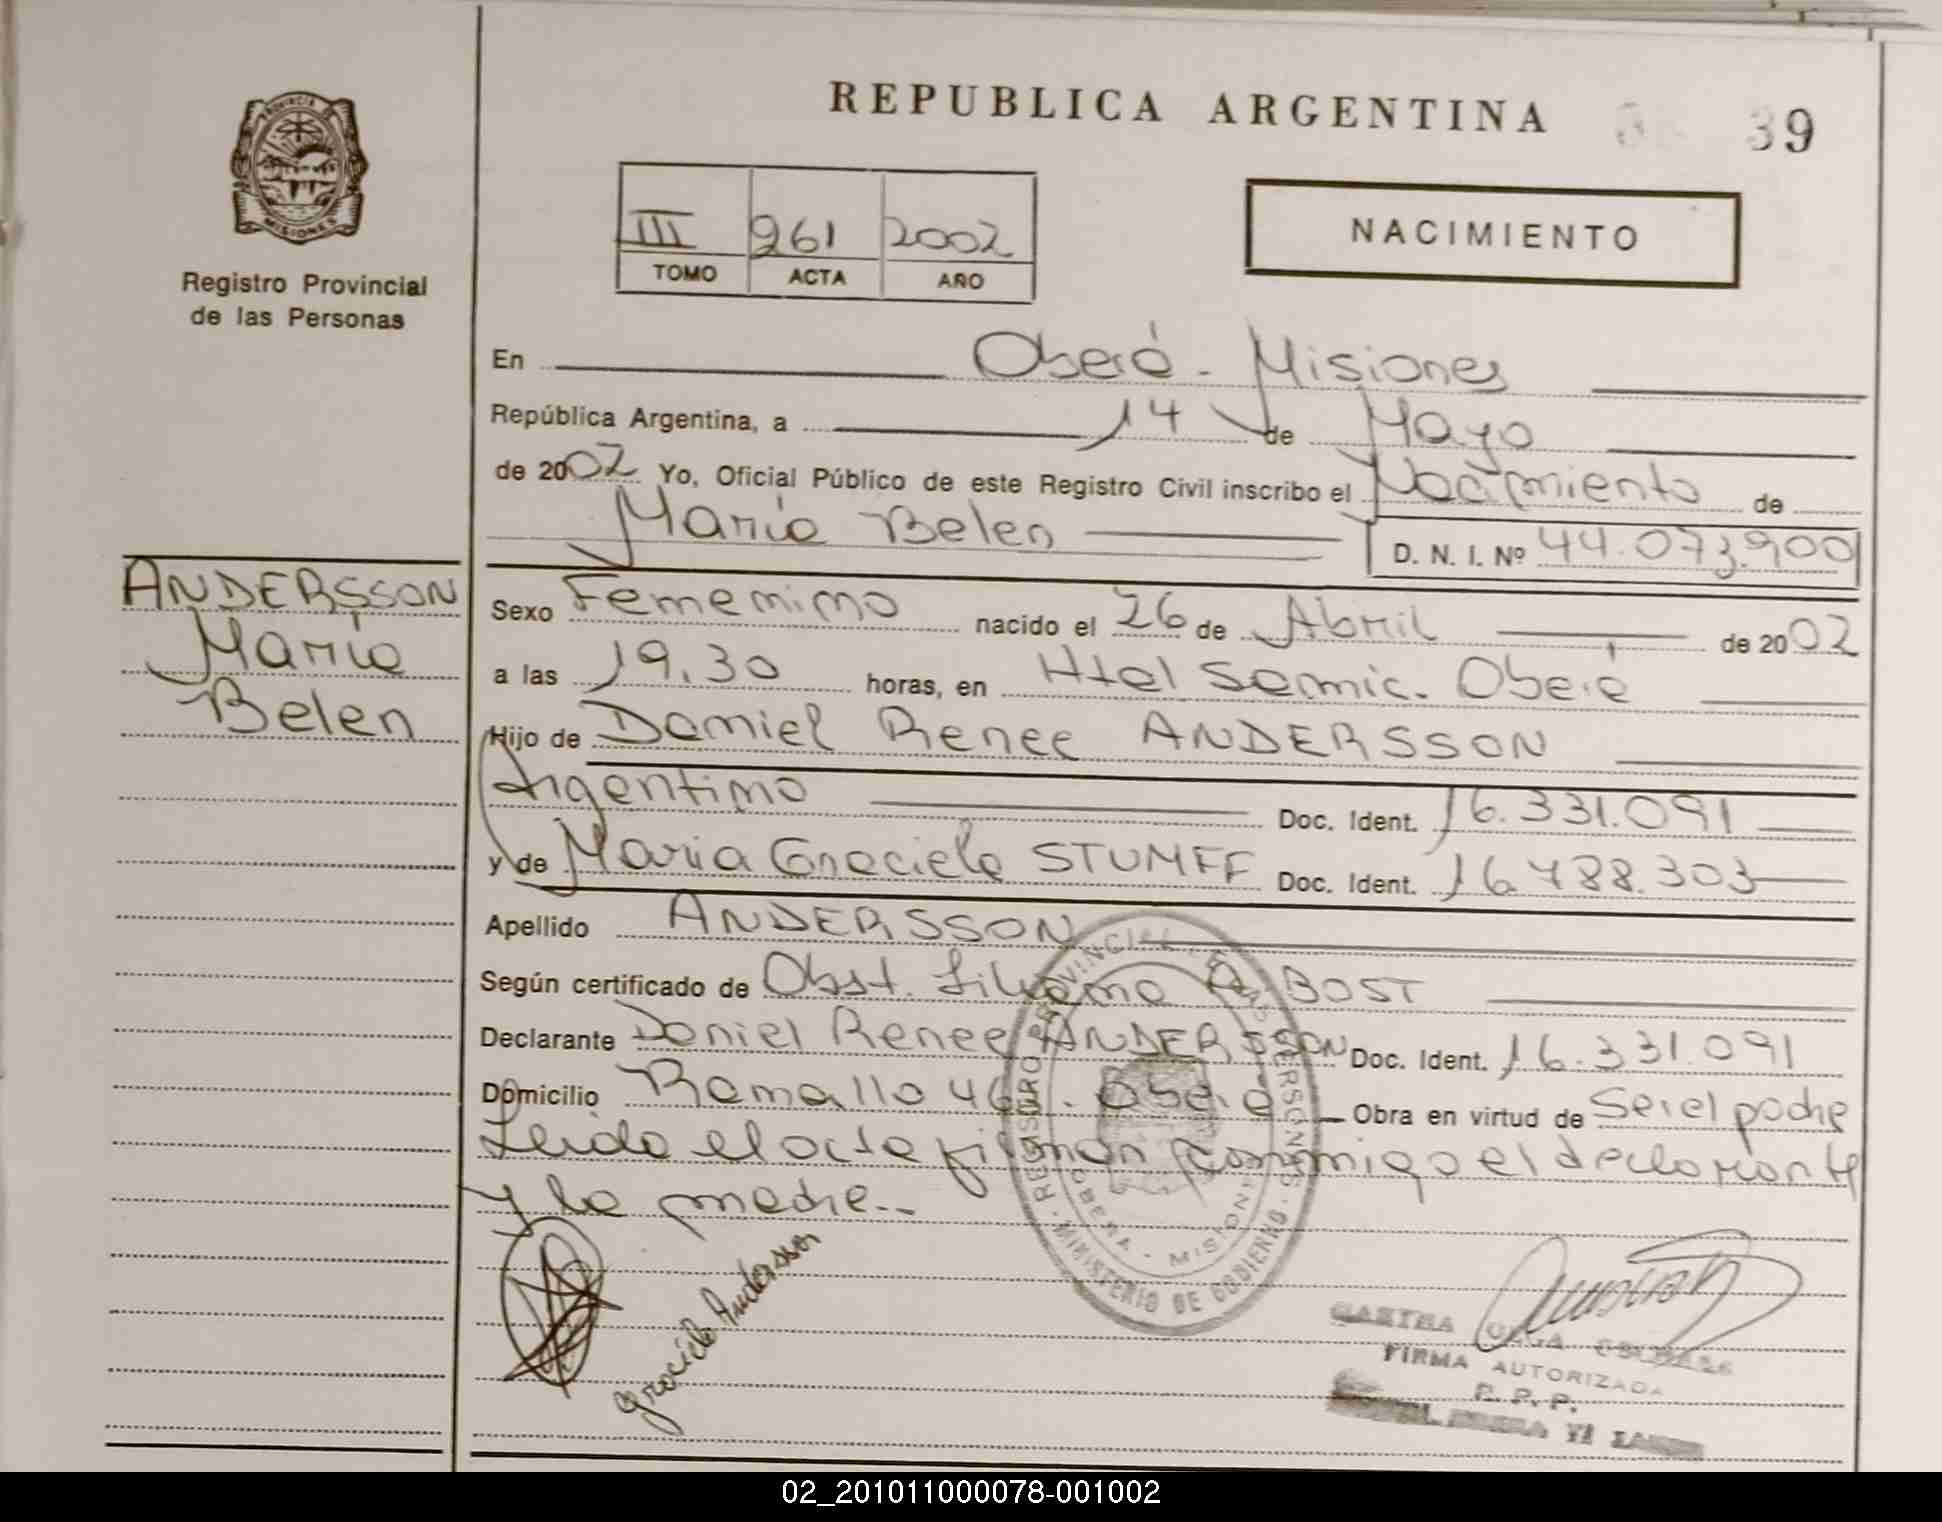 REPUBLICA ARGENTINA
39
PROVINCIA DE MISIONES
Registro Provincial
de las Personas
III 261 2002
TOMO ACTA AÑO
NACIMIENTO
En Oberá - Misiones
República Argentina, a 14 de Mayo
de 2002 Yo, Oficial Público de este Registro Civil inscribo el Nacimiento de
María Belen D. N. I. Nº 44.073.900
ANDERSSON
María
Belen
Sexo Femenino nacido el 26 de Abril de 2002
a las 19,30 horas, en Htal Samic. Oberá
Hijo de Daniel Renee ANDERSSON
Argentino Doc. Ident. 16.331.091
y de Maria Graciela STUMFF Doc. Ident. 16.788.303
Apellido ANDERSSON
Según certificado de Obst. Liliana BOST
Declarante Daniel Renee ANDERSSON Doc. Ident. 16.331.091
Domicilio Ramallo Oberá Obra en virtud de Ser el padre
Leida el acta firman conmigo el declarante
y la madre.-
Graciela Andersson
REGISTRO PROVINCIAL DE LAS PERSONAS
MINISTERIO DE GOBIERNO
OBERA - MISIONES
OLGA
FIRMA AUTORIZADA
R. P. P.
02_201011000078-001002